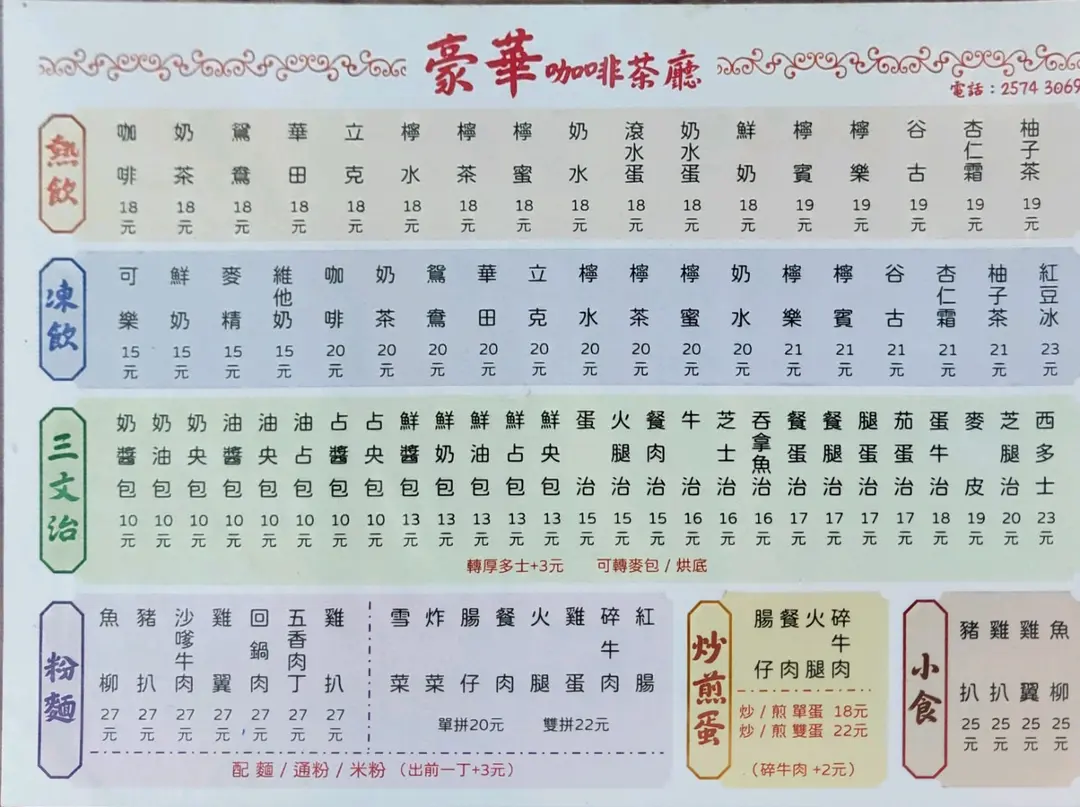 豪華咖啡茶廳
電話：2574 3069
熱飲
咖啡 18元
奶茶 18元
鴛鴦 18元
華田 18元
立克 18元
檸水 18元
檸茶 18元
檸蜜 18元
奶水 18元
滾水蛋 18元
奶水蛋 18元
鮮奶 18元
檸賓 19元
檸樂 19元
谷古 19元
杏仁霜 19元
柚子茶 19元
凍飲
可樂 15元
鮮奶 15元
麥精 15元
維他奶 15元
咖啡 20元
奶茶 20元
鴛鴦 20元
華田 20元
立克 20元
檸水 20元
檸茶 20元
檸蜜 20元
奶水 20元
檸樂 21元
檸賓 21元
谷古 21元
杏仁霜 21元
柚子茶 21元
紅豆冰 23元
三文治
奶醬包 10元
奶油包 10元
奶央包 10元
油醬包 10元
油央包 10元
油占包 10元
占醬包 10元
占央包 10元
鮮醬包 13元
鮮奶包 13元
鮮油包 13元
鮮占包 13元
鮮央包 13元
蛋治 15元
火腿治 15元
餐肉治 15元
牛治 16元
芝士治 16元
吞拿魚治 16元
餐蛋治 17元
餐腿治 17元
腿蛋治 17元
茄蛋治 17元
蛋牛治 18元
麥皮 19元
芝腿治 20元
西多士 23元
轉厚多士+3元 可轉麥包 / 烘底
粉麵
魚柳 27元
豬扒 27元
沙嗲牛肉 27元
雞翼 27元
回鍋肉 27元
五香肉丁 27元
雞扒 27元
雪菜
炸菜
腸仔
餐肉
火腿
雞蛋
碎牛肉
紅腸
單拼20元 雙拼22元
配 麵 / 通粉 / 米粉 （出前一丁+3元）
炒煎蛋
腸仔
餐肉
火腿
碎牛肉
炒 / 煎 單蛋 18元
炒 / 煎 雙蛋 22元
（碎牛肉 +2元）
小食
豬扒 25元
雞扒 25元
雞翼 25元
魚柳 25元